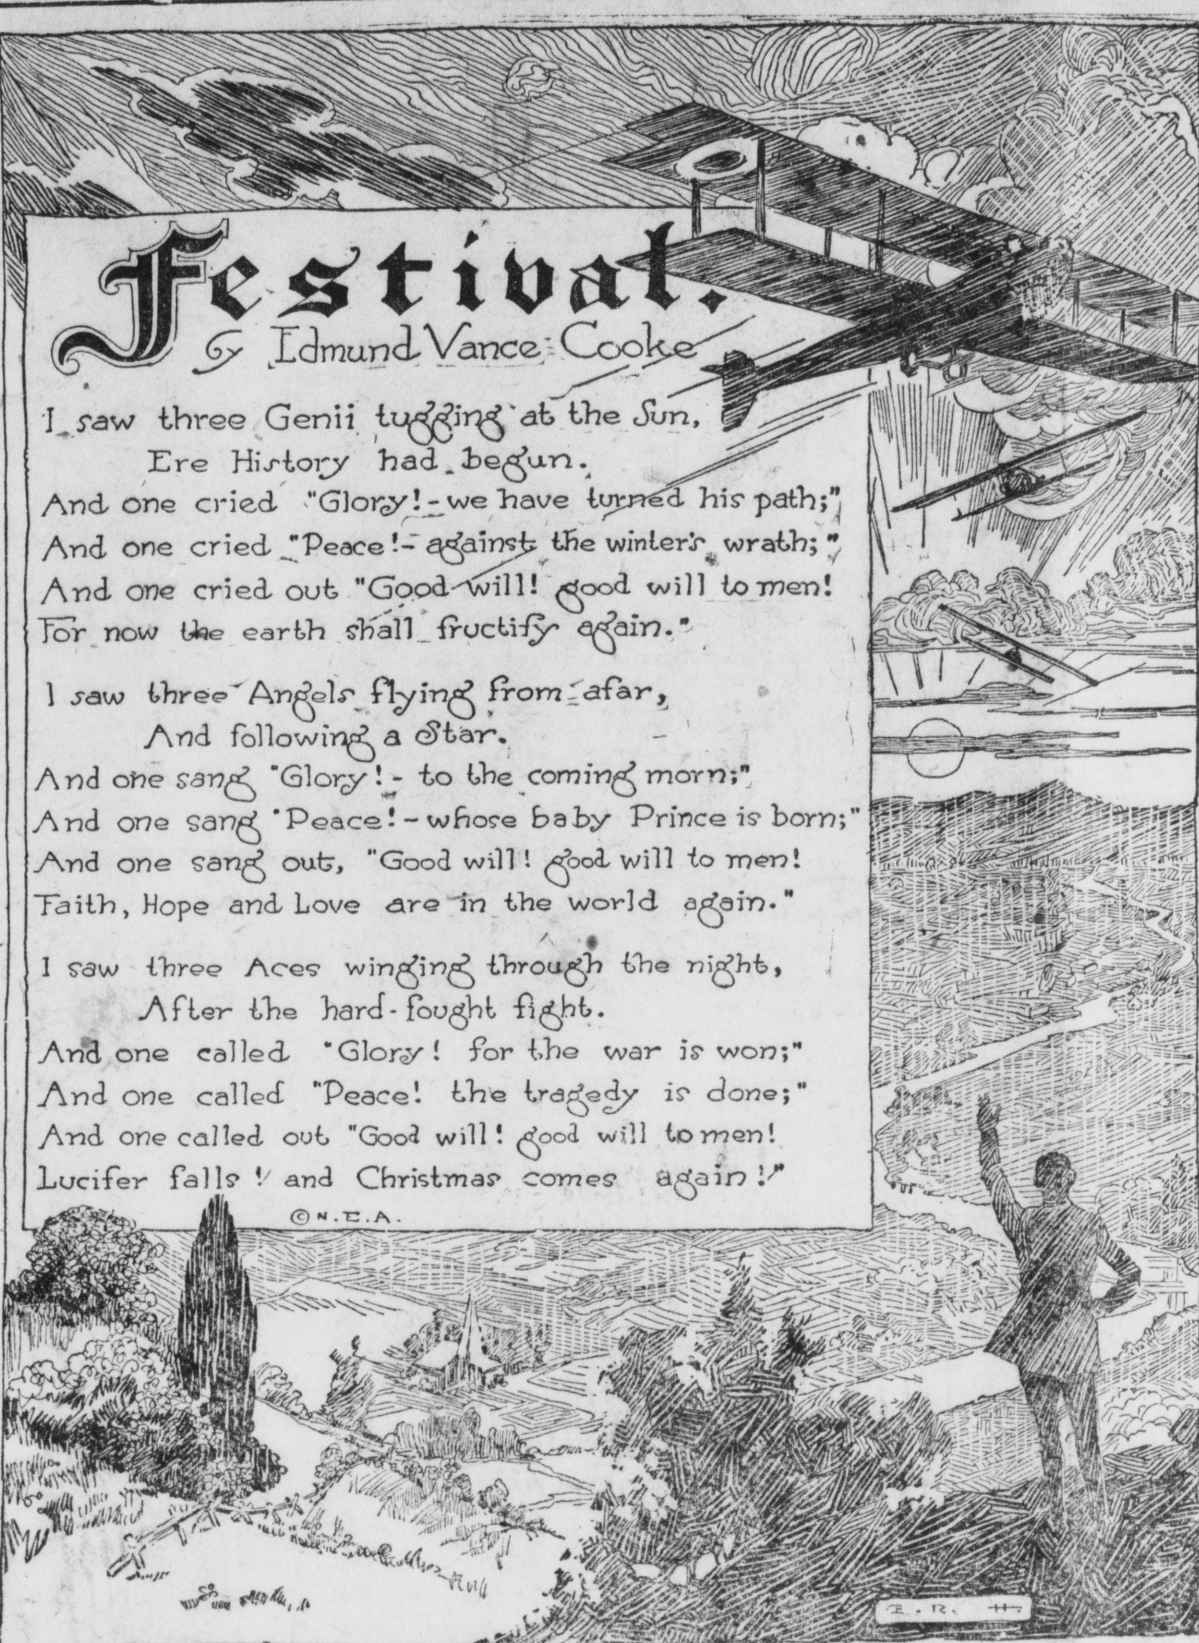 Festival.
By Edmund Vance Cooke
I saw three Genii tugging at the Sun,
Ere History had begun.
And one cried "Glory!-we have turned his path;"
And one cried "Peace!-against the winter's wrath;"
And one cried out "Good-will! good will to men!
For now the earth shall fructify again."
I saw three Angels flying from afar,
And following a Star.
And one sang "Glory!- to the coming morn;"
And one sang "Peace!-whose baby Prince is born;"
And one sang out, "Good will! good will to men!
Faith, Hope and Love are in the world again."
I saw three Aces winging through the night,
After the hard-fought fight.
And one called "Glory! for the war is won;"
And one called "Peace! the tragedy is done;"
And one called out "Good will! good will to men!
Lucifer falls! and Christmas comes again!"
© N.E.A.
E. R. H.